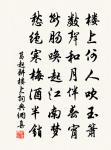 樓上何人吹玉簫
數聲和月伴春宵
斷腸喚起江南夢
愁絕寒梅酒半銷
葛起耕樓上